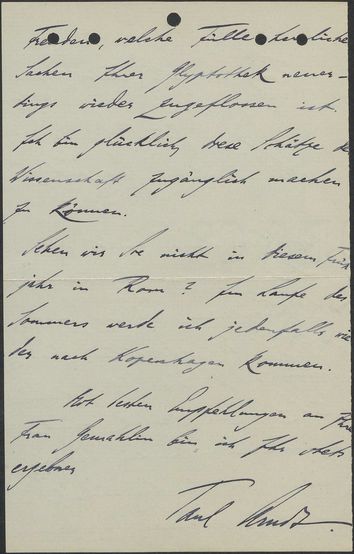 Freuden, welche Fülle herrlicher
Sachen Ihrer Glyptothek neuer-
dings wieder zugeflossen ist.
Ich bin glücklich, diese Schätze der
Wissenschaft zugänglich machen
zu können.
Sehen wir Sie nicht in diesem Früh
jahr in Rom? Im Laufe des
Sommers werde ich jedenfalls wie
der nach Kopenhagen kommen.
Mit besten Empfehlungen an Ihre
Frau Gemahlin bin ich Ihr stets
ergebener
Paul Arndt.